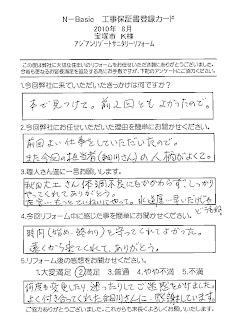 N－Basic　工事保証書登録カード
2010年　8月
宝塚市　K様
アジアンリゾートサニタリーリフォーム
この度は弊社に大切な住まいのリフォームをお任せいただき誠にありがとうございました。
今後も更なるお客様満足を目指すため、下記のアンケートにご協力ください。
1.今回弊社に来ていただいたきっかけは何ですか？
本で見つけて。前2回ともよかったので。
2.今回弊社にお任せいただいた理由を簡単にお聞かせください。
前回よい仕事をしていただいたので。
また今回の担当者(細川さん)の人柄がよくて。
3.職人さん達に一言お願いします。
秋田大工さん体調不良にもかかわらず、しっかり
やってくれてありがとう。
4.今回リフォーム中に感じた事を簡単にお聞かせください。
時間(始め・終わり)を守ってくれてよかった。
遠くから来てくれて、ありがとう。
5.リフォーム後の感想をお聞かせください。
1.大変満足 2.満足 3.普通 4.やや不満 5.不満
何度も変更したり迷ったりしてご迷惑をかけました。
よく付き合ってくれた細川さんに感謝しています。
ご協力ありがとうございました。これからも末永くよろしくお願いいたします。